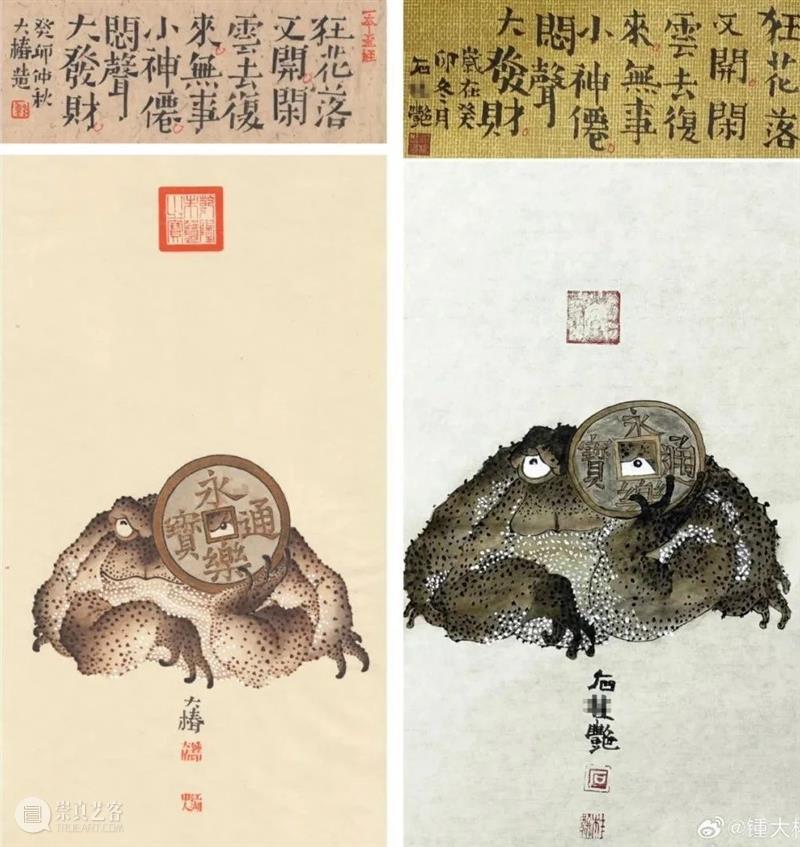 狂花落
又開閑
雲去復
來無事
小神僊
悶聲
大發財
癸卯仲秋
大椿造
狂花落
又開閑
雲去復
來無事
小神僊
悶聲
大發財
歲在癸
卯冬月
石 艷
永樂通寶
大椿
永樂通寶
石 艷
石
崇真艺客
TRUEART.COM
@锺大